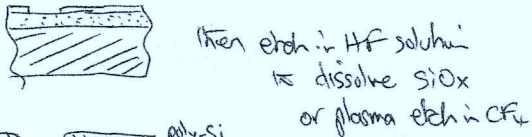 then etch in HF solution
to dissolve SiOx
or plasma etch in CF4
poly-Si